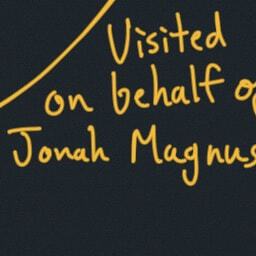 Visited
on behalf of
Jonah Magnus